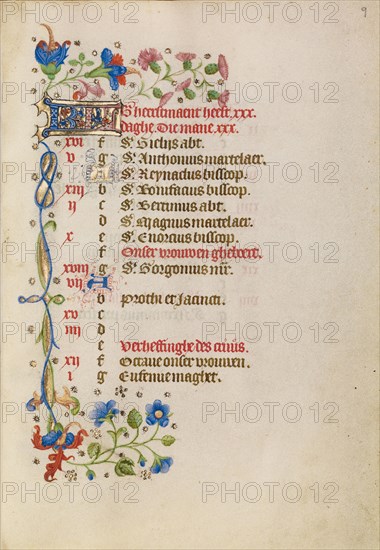 9
herfstmaent heeft .xxx.
daghe. Die mane .xxx.
xvi f S. Gielijs abt.
v g S. Anthonius martelaer.
A S. Reynadus bisscop.
xiii b S. Bonifacius bisscop.
ii c S. Bertinus abt.
d S. Magnus martelaer.
x e S. Enorcus bisscop.
f Onser vrouwen gheboert.
xviii g S. Gorgonius mr.
vii A
b Prothi et Jacincti.
xv c
iiii d
e Verheffinghe des cruus.
xii f Octave onser vrouwen.
i g Eufemie maghet.
PHOTO 12 PHOTO 12 PHOTO 12